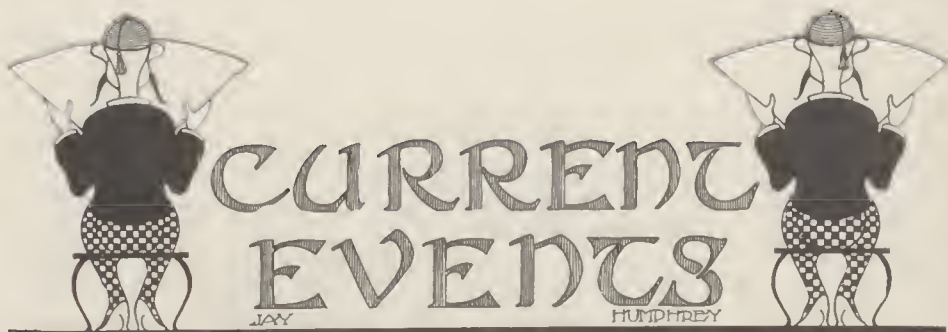 CURRENT
EVENTS
JAY HUMPHREY